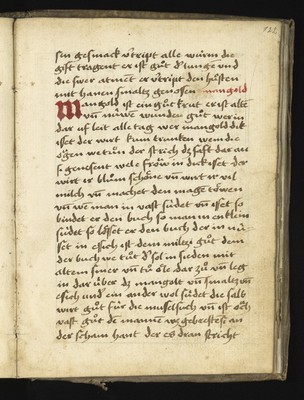 sin gesmack v'tript alle würm die
gift tragent er ist gůt d' lunge vnd
die swer atment er v'tript den hůsten
mit hanen smaltz genossen mangold
Mangold ist ein gůt krut er ist alte
vñ nüwe wunden gůt wer in
dar uf leit alle tag wer mangold dik
isset der wirt kum trunken wem die
ogen we tůn der strich dz saft dar an
so genesent wele frow in dick isset der
wirt ir blům schöne vñ wirt ir vil
milch vñ machet den mage
vñ we man in vast südet vñ isset so
bindet er den buch so man in en klein
südet so löset er den buch der in nü
set in essich ist dem miltzi gůt dem
der buch we tůt d' sol in sieden mit
altem smer vñ tů öle dar zů vñ leg
in dar über dz mangolt vñ smaltz vñ
essich und ein ander wol südet die salb
wirt gůt für die müselsuch vñ ist och
vast gůt de manne wz gebresten an
der scham hant der es dran stricht